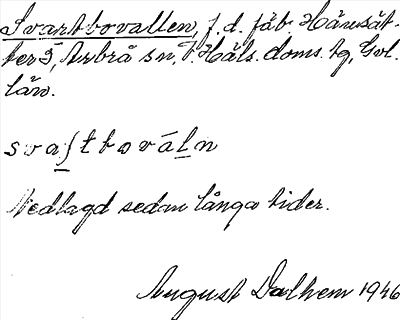 Svartbovallen, f.d. fäb. Hänsät-
ter 5, Arbrå sn, V. Häls. doms. tg, Gvl.
län.
svaʃtbovάln
Nedlagd sedan långa tider.
August Dalhem 1946